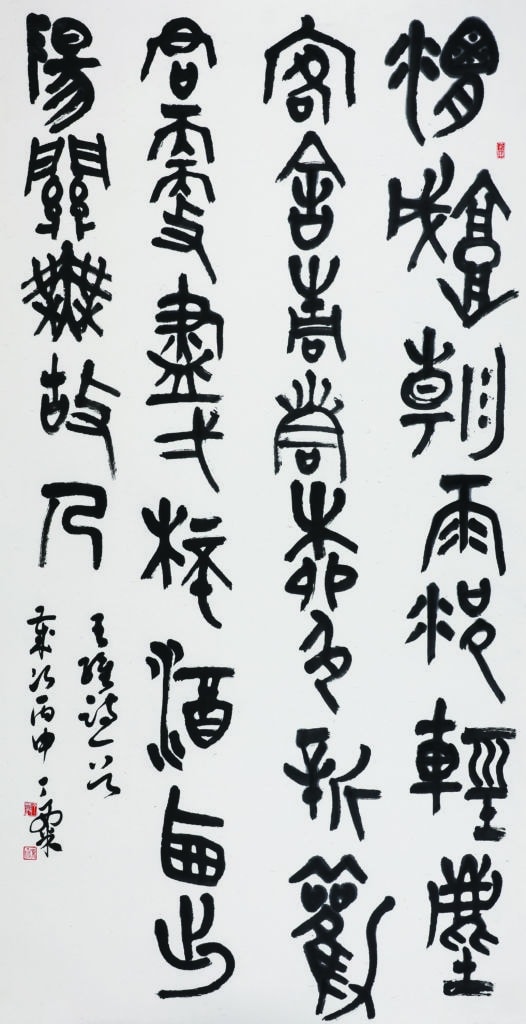 渭城朝雨浥輕塵
客舍青青柳色新勸
君更盡一杯酒西出
陽關無故人
王維詩一首
歲次丙申